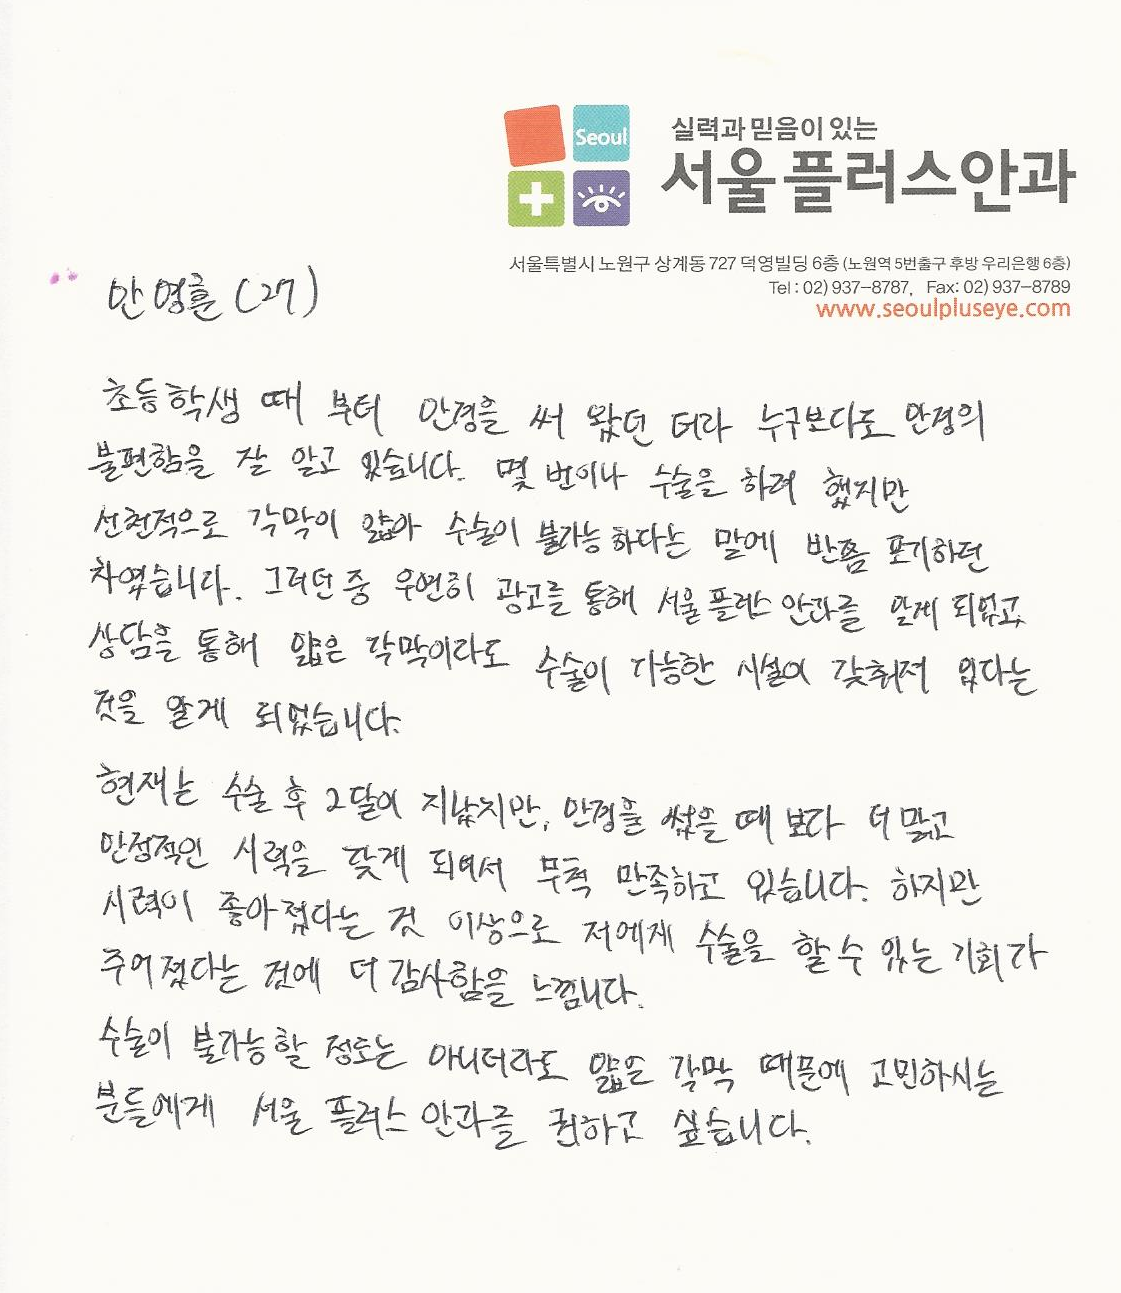 Seoul
실력과 믿음이 있는
서울플러스안과
서울특별시 노원구 상계동 727 덕영빌딩 6층 (노원역 5번출구 후방 우리은행 6층)
Tel : 02) 937-8787, Fax: 02) 937-8789
www.seoulpluseye.com
안영훈 (27)
초등학생 때 부터 안경을 써 왔던 터라 누구보다도 안경의
불편함을 잘 알고 있습니다. 몇 번이나 수술을 하려 했지만
선천적으로 각막이 얇아 수술이 불가능하다는 말에 반쯤 포기하던
차였습니다. 그러던 중 우연히 광고를 통해 서울 플러스 안과를 알게 되었고,
상담을 통해 얇은 각막이라도 수술이 가능한 시설이 갖춰져 있다는
것을 알게 되었습니다.
현재는 수술 후 2달이 지났지만, 안경을 썼을 때 보다 더 맑고
안정적인 시력을 갖게 되어서 무척 만족하고 있습니다. 하지만
시력이 좋아졌다는 것 이상으로 저에게 수술을 할 수 있는 기회가
주어졌다는 것에 더 감사함을 느낍니다.
수술이 불가능할 정도는 아니더라도 얇은 각막 때문에 고민하시는
분들에게 서울 플러스 안과를 권하고 싶습니다.